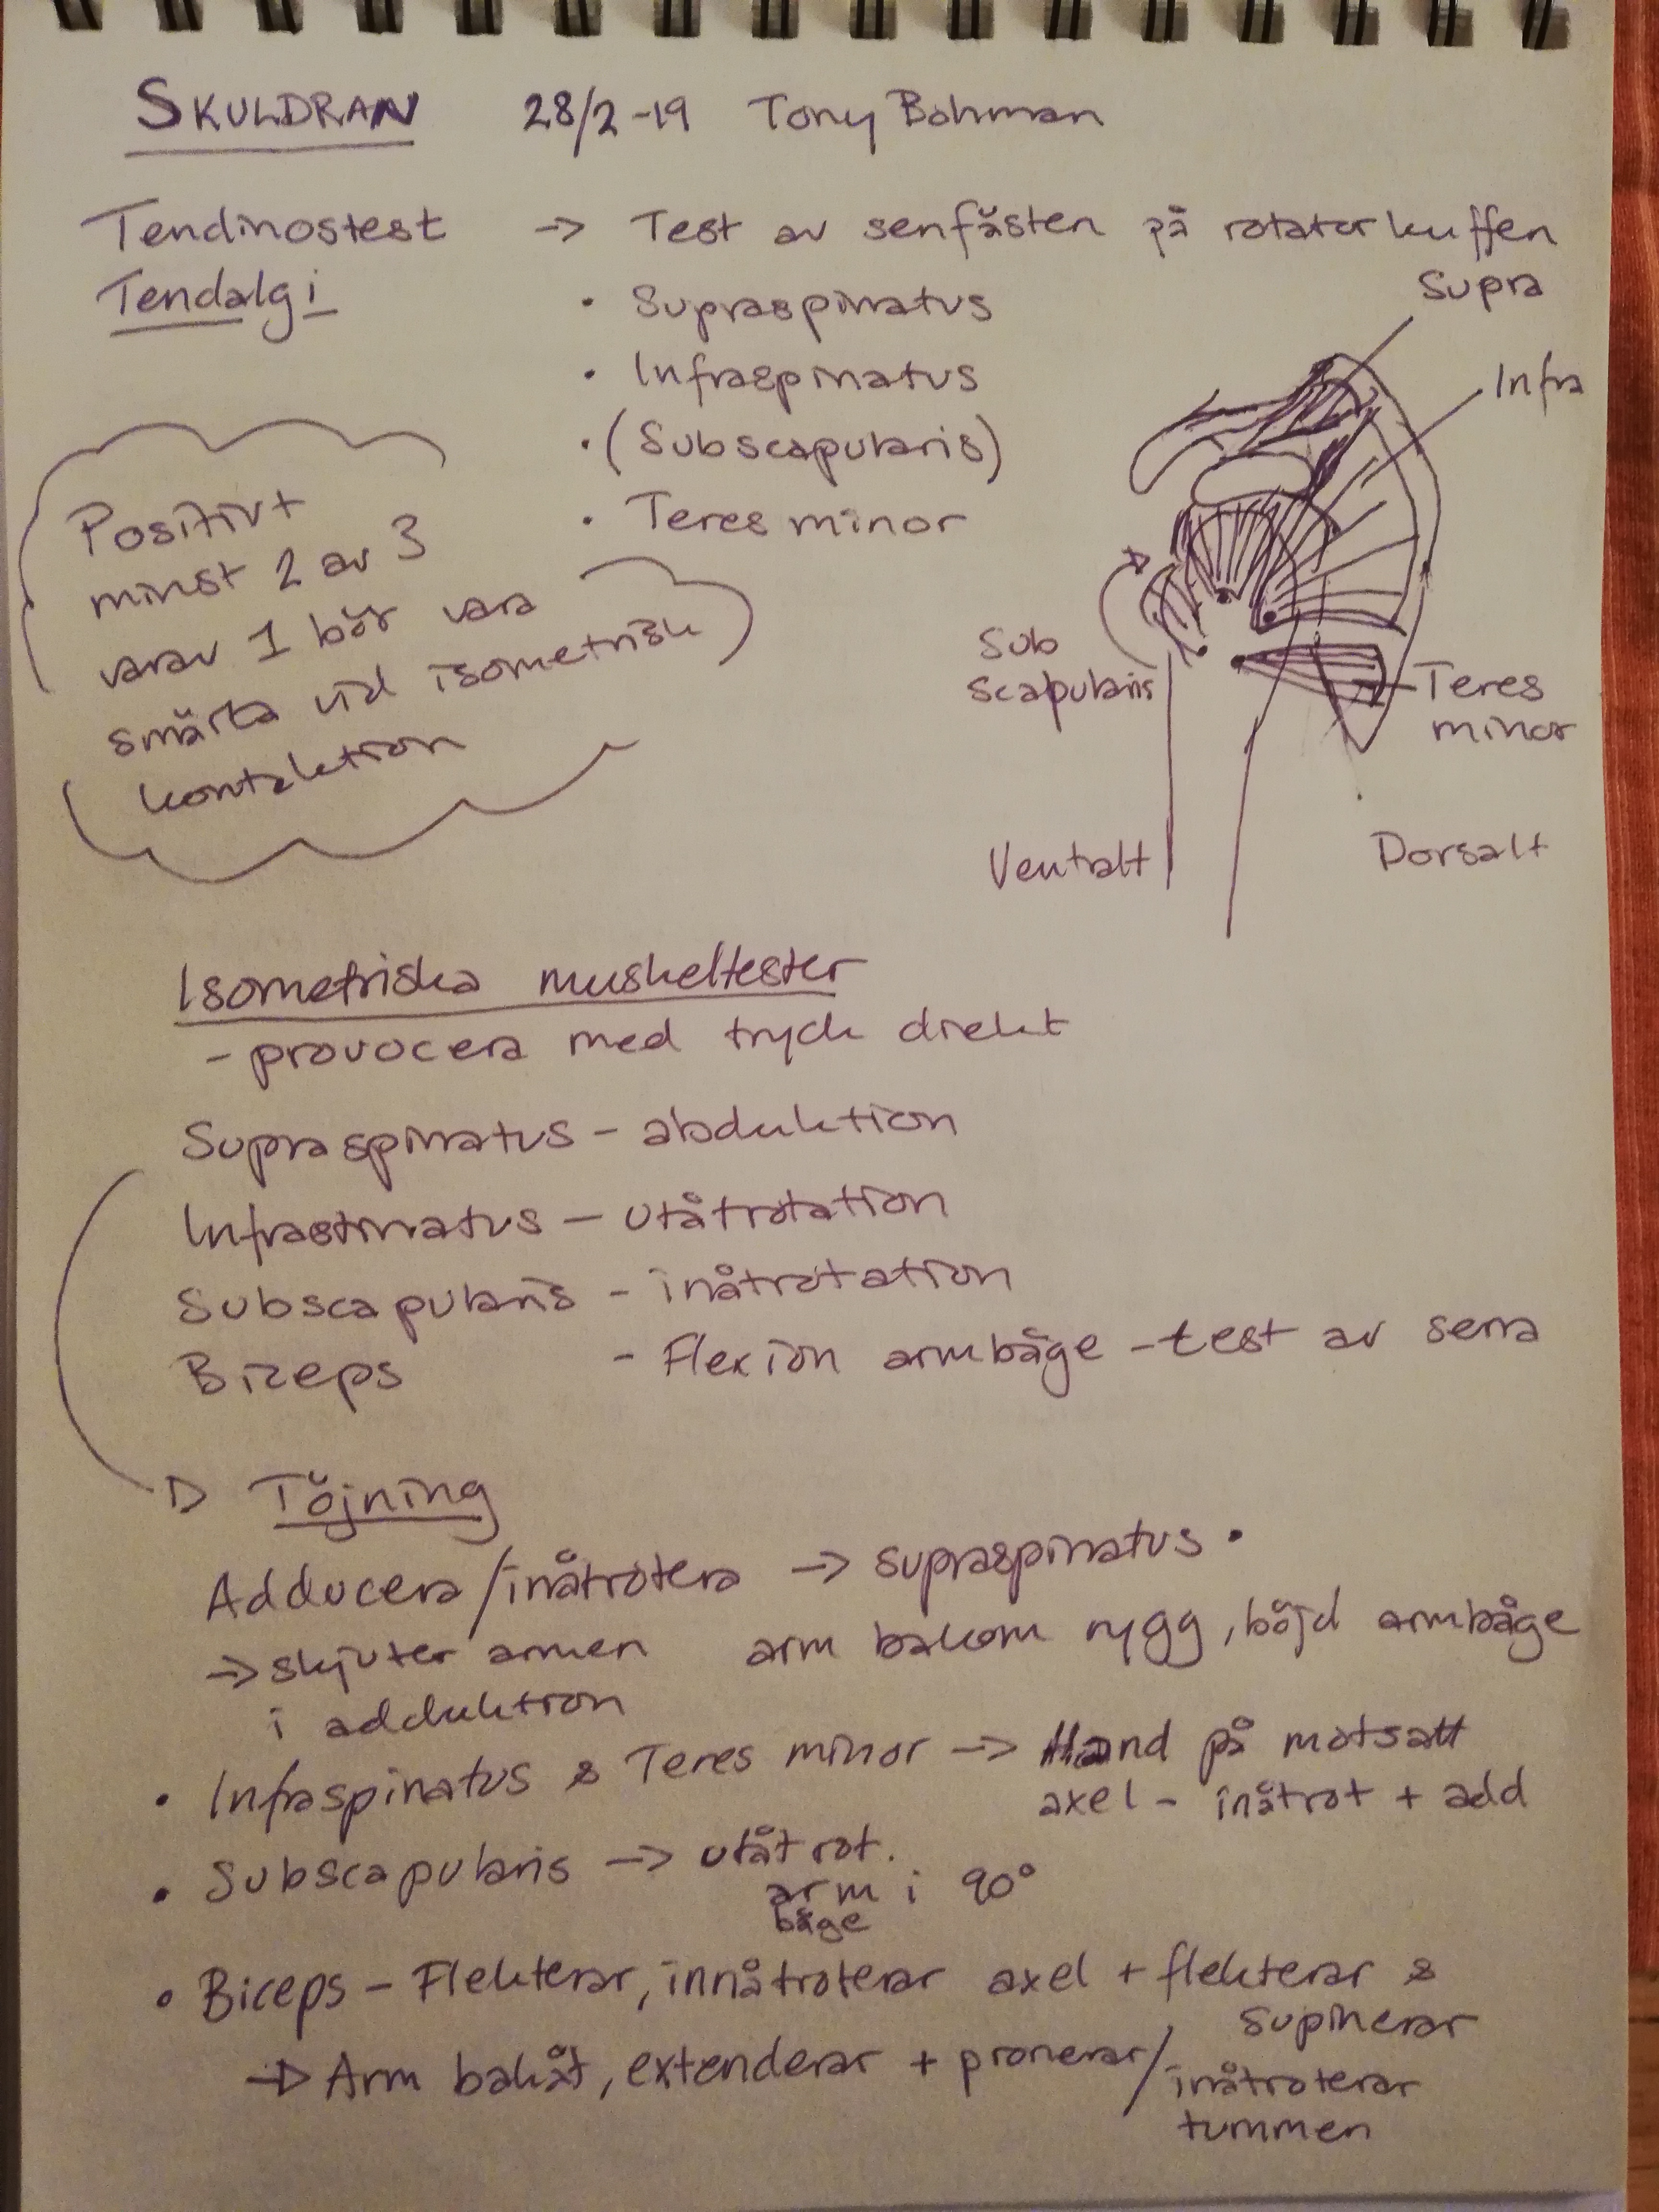 SKULDRAN 28/2-19 Tony Bohman
Tendinostest -> Test av senfästen på rotatorkuffen
Tendalgi
• Supraspinatus
• Infraspinatus
• (Subscapularis)
• Teres minor
Supra
Infra
Sub
scapularis
Teres
minor
Ventralt
Dorsalt
Positivt
minst 2 av 3
varav 1 bör vara
smärta vid isometrisk
kontraktion
Isometriska muskeltester
- provocera med tryck direkt
Supraspinatus - abduktion
Infrastinatus - utåtrotation
Subscapularis - inåtrotation
Biceps - Flexion armbåge - test av sena
Töjning
Adducera/inåtrotera -> supraspinatus •
-> skjuter armen arm bakom rygg, böjd armbåge
i adduktion
• Infraspinatus & Teres minor -> Hand på motsatt
axel - inåtrot + add
• Subscapularis -> utåtrot.
arm i 90°
båge
• Biceps - Flekterar, innåtroterar axel + flekterar &
supinerar
-> Arm bakåt, extenderar + pronerar/
inåtroterar
tummen